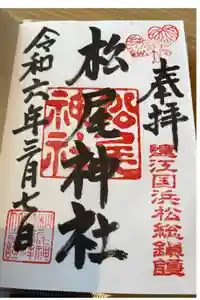 奉拝
遠江国浜松総鎮護
松尾神社
松尾神社
令和六年三月七日